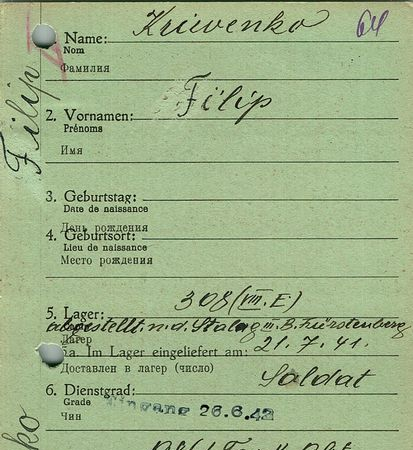 Krivenko
64
1. Name:
Nom
Фамилия
Filip
Filip
2. Vornamen:
Prénoms
Имя
3. Geburtstag:
Date de naissance
День рождения
4. Geburtsort:
Lieu de naissance
Место рождения
308 (VIII. E.)
5. Lager:
abgestellt n. d. Stalag III. B. Fürstenberg
Лагер
5a. Im Lager eingeliefert am: 21.7.41.
Доставлен в лагер (число)
6. Dienstgrad: Soldat
Grade
Чин
Eingang 26.6.42
ko